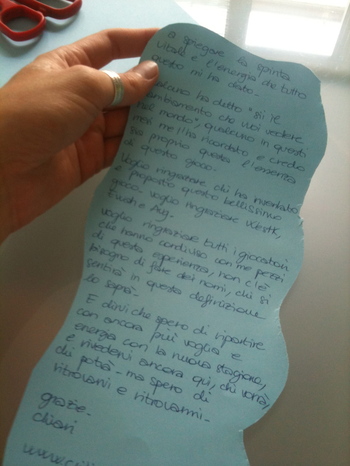 a spiegare la spinta
vitale e l'energia che tutto
questo mi ha dato.
qualcuno ha detto "sii il
cambiamento che vuoi vedere
nel mondo", qualcuno in questi
mesi me l'ha ricordato e credo
sia proprio questa l'essenza
di questo gioco.
Voglio ringraziare chi ha inventato
e proposto questo bellissimo
gioco. voglio ringraziare
voglio ringraziare tutti i giocatori
che hanno condiviso con me pezzi
di questa esperienza, non c'è
bisogno di fare dei nomi, chi si
sentirà in questa definizione
lo saprà.
E dirvi che spero di ripartire
con ancora più voglia e
energia con la nuova stagione,
e rivedervi ancora qui, chi vorrà,
chi potrà - ma spero di
ritrovarvi e ritrovarmi -
grazie -
chiari